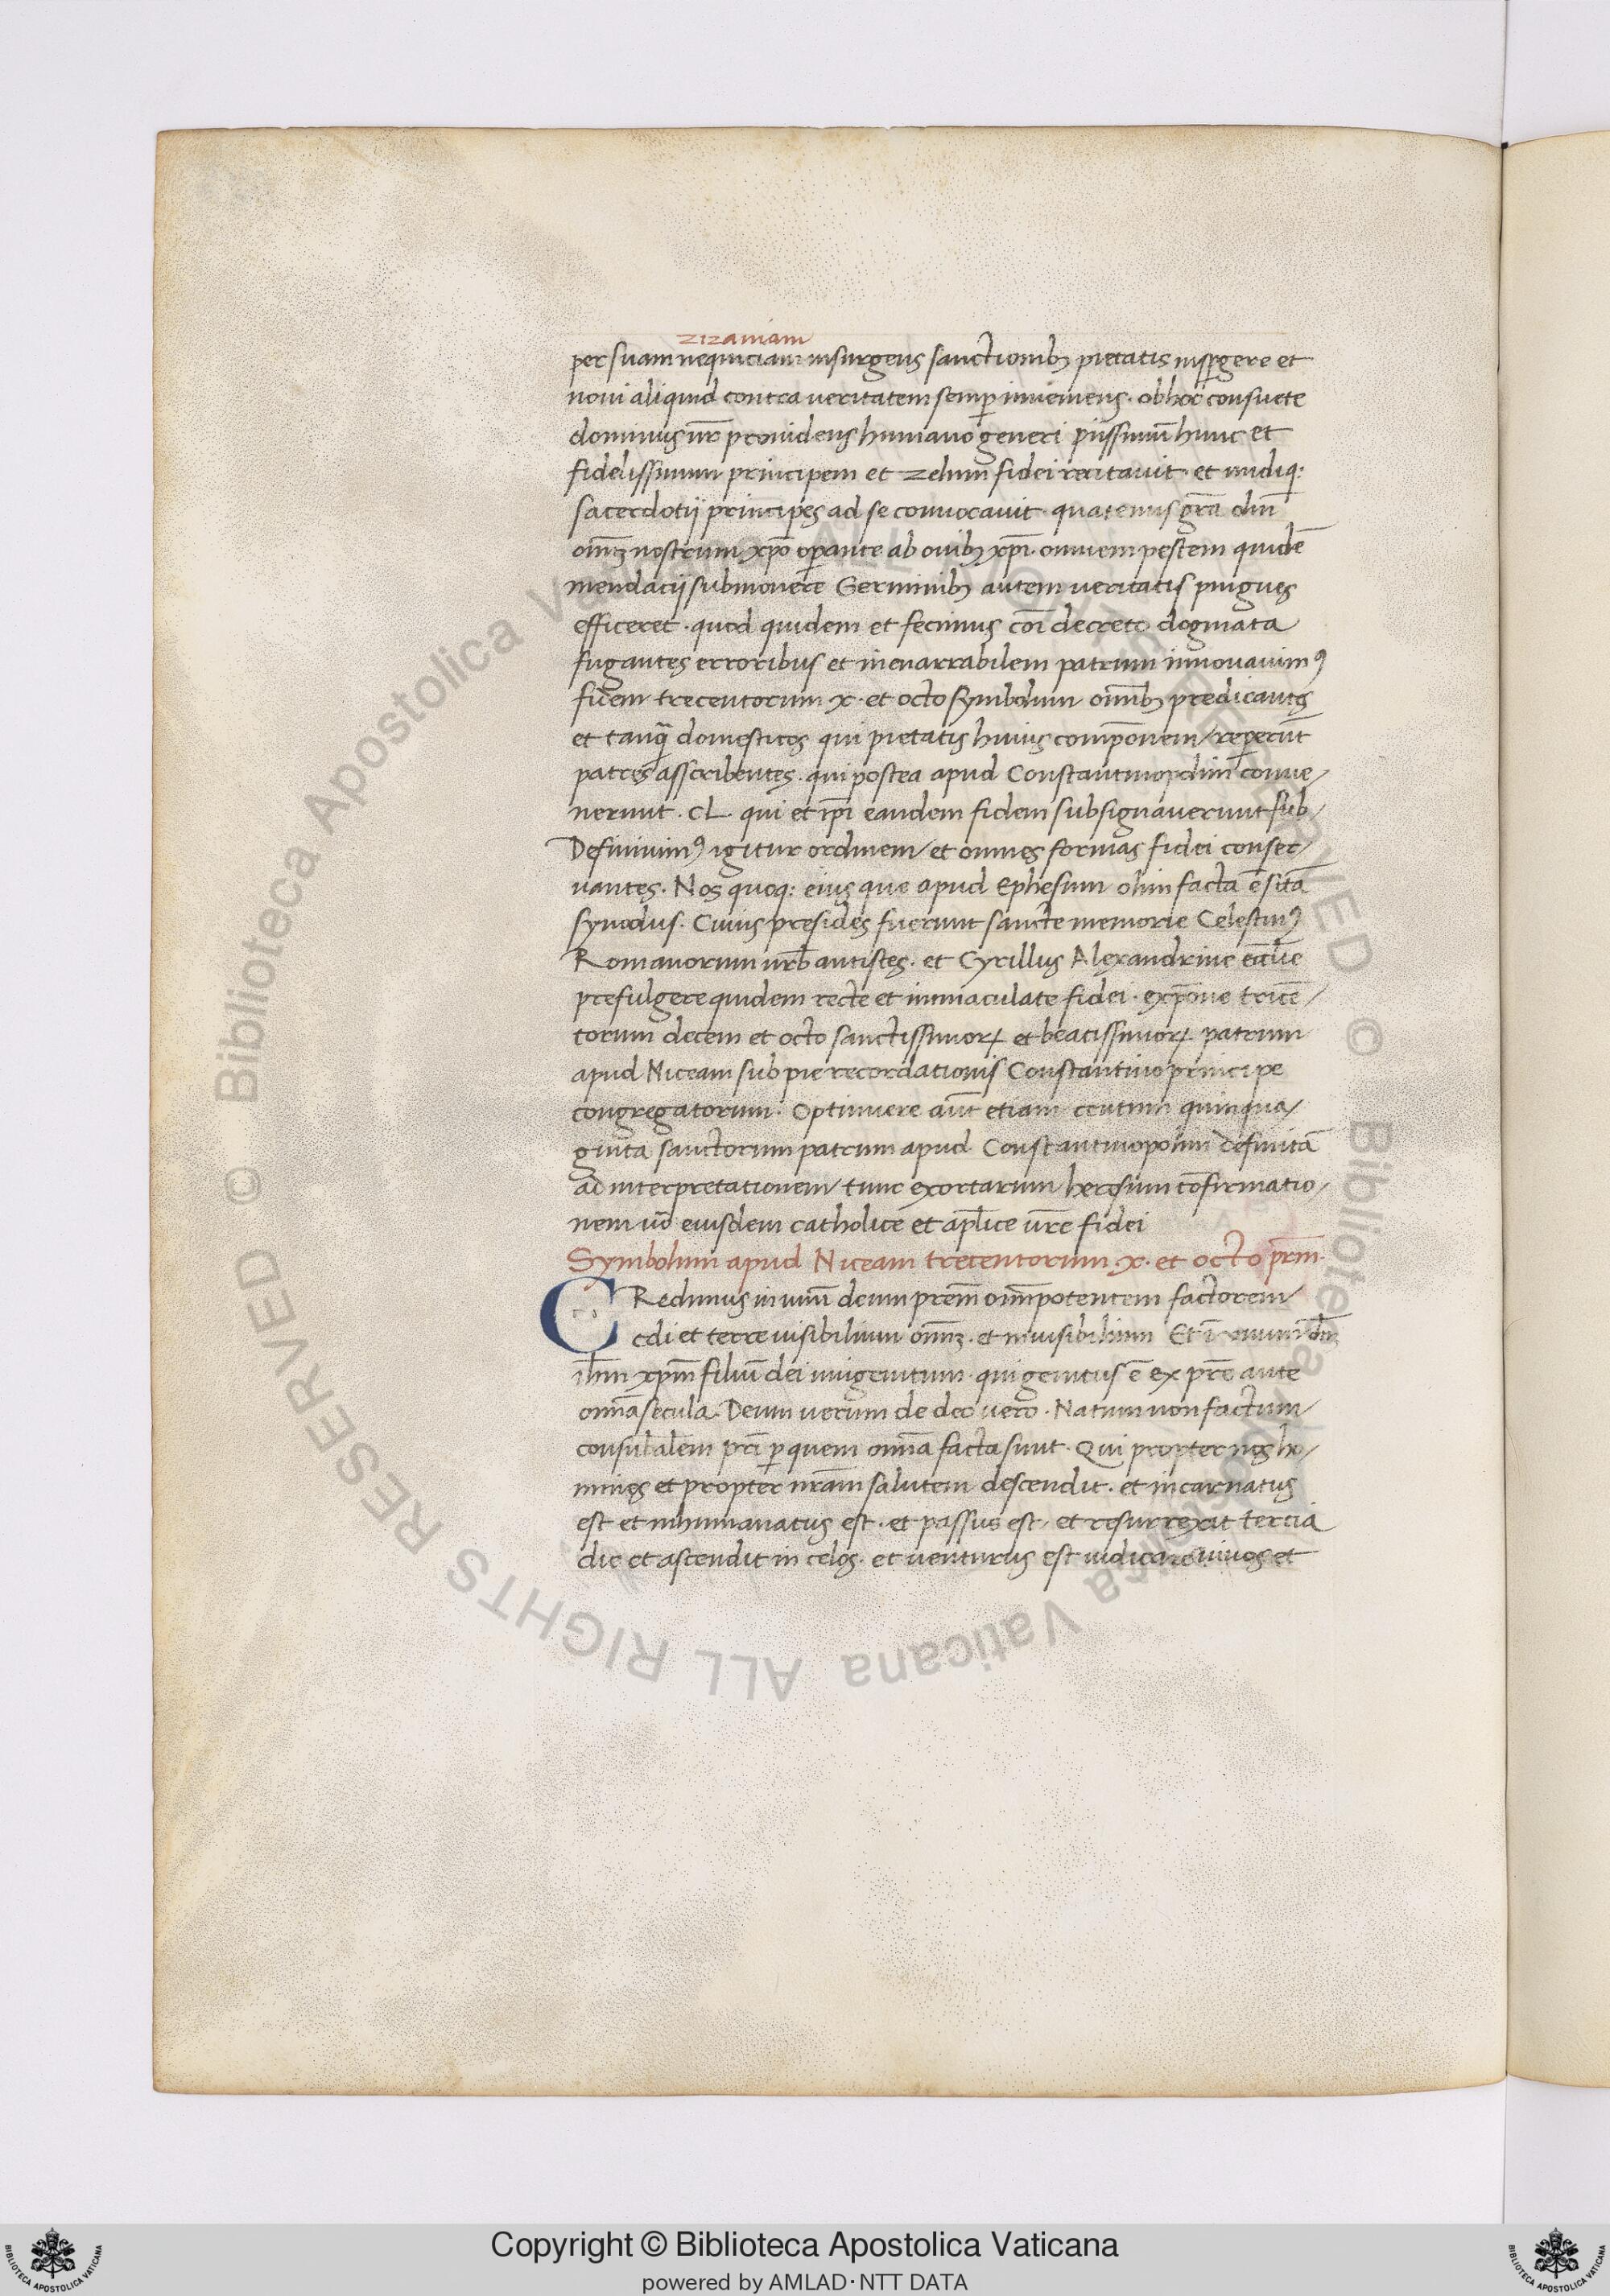 zizaniam
per suam nequiciam insurgens sanctionibꝫ pietatis insꝑgere et
novi aliquid contra veritatem semꝑ inveniens · ob hoc consuete
dominus nr̄ providens humano generi piissimū hunc et
fidelissimum principem et zelum fidei recitavit · et undiqꝫ
sacerdotij principes ad se convocavit · quatenus gr̄a dn̄i
om̄ꝫ nostrum xp̄o oꝑante ab ovibꝫ xp̄i · omnem pestem quidē
mendacij submovere Germinibꝫ autem veritatis pingues
efficeret · quod quidem et fecimus cōi decreto dogmata
fugantes erroribus et inenarrabilem patrum innovavimꝰ
fidem trecentorum x · et octo symbolum om̄ibꝫ predicantes
et tanqꝫ domesticos qui pietatis huius comp̄onem / reperer̄t
patres asscribentes · qui postea apud Constantinopolim conve/
nerunt · CL · qui et ip̄i eandem fidem subsignaverunt sub/
Definivimꝰ igitur ordinem / et omnes formas fidei conser/
vantes · Nos quoqꝫ eius que apud Ephesum olim facta ē sctā
synodus · Cuius presides fuerunt sancte memorie Celestinꝰ
Romanorum urb̄ antistes · et Cyrillus Alexandrine eccl̄ie
prefulgere quidem recte et immaculate fidei · exp̄one tricē/
torum decem et octo sanctissimoꝝ et beatissimoꝝ patrum
apud Niceam sub pie recordationis Constantino principe
congregatorum · Optinuere aūt etiam centum quinqua/
ginta sanctorum patrum apud Constantinopolim definitā
ad interpretationem / tunc exortarum heresium cōfirmatio/
nem v̄o eiusdem catholice et apl̄ice nr̄e fidei
Symbolum apud Niceam trecentorum · x · et octo pr̄m ·
CRedimus in unū deum prēm om̄ipotentem factorem
celi et terre visibilium om̄ꝫ · et invisibilium Et ī unum dn̄m
ih̄m xp̄m filiū dei unigenitum · qui genitus ē ex pr̄e ante
om̄a secula · Deum verum de deo vero · Natum non factum
consub̄alem pr̄i ꝑ quem om̄a facta sunt · Qui propter nos ho/
mines et propter nr̄am salutem descendit · et incarnatus
est et inhumanatus est · et passus est · et resurrexit tercia
die et ascendit in celos · et venturus est iudicare vivos et
© Biblioteca Apostolica Vaticana ALL RIGHTS RESERVED © Biblioteca Apostolica Vaticana ALL RIGHTS RESERVED
Copyright © Biblioteca Apostolica Vaticana
powered by AMLAD·NTT DATA
BIBLIOTECA APOSTOLICA VATICANA
BIBLIOTECA APOSTOLICA VATICANA